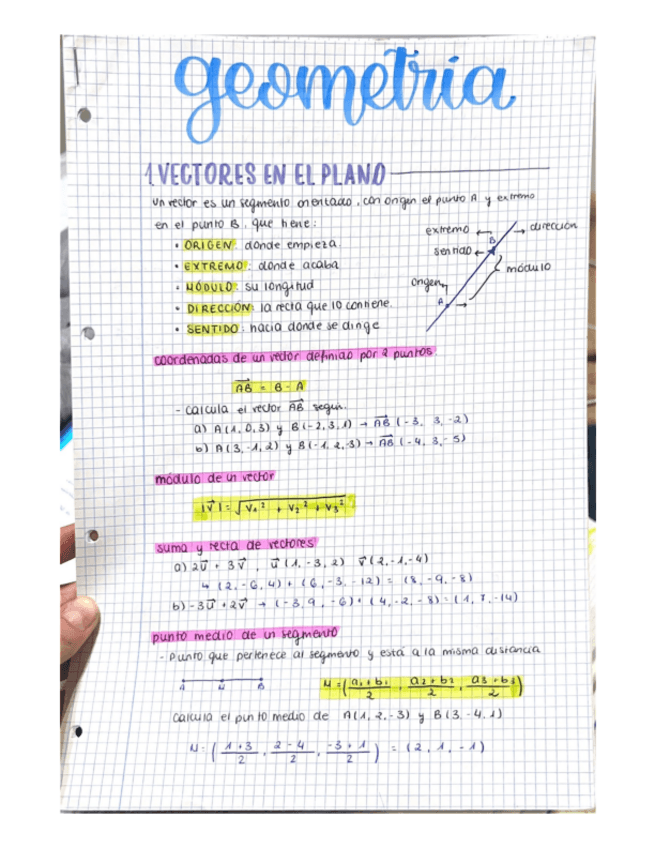 geometria
1. VECTORES EN EL PLANO
Un vector es un segmento orientado, con origen el punto A y extremo
en el punto B, que tiene:
• ORIGEN: donde empieza.
• EXTREMO: donde acaba
• MÓDULO: su longitud
• DIRECCIÓN: la recta que lo contiene.
• SENTIDO: hacia donde se dirige
extremo
dirección
B
sentido
módulo
origen
A
coordenadas de un vector definido por 2 puntos.
AB = B - A
- Calcula el vector AB según.
a) A(1, 0, 3) y B(-2, 3, 1) → AB (-3, 3, -2)
b) A(3, -1, 2) y B(-1, 2, -3) → AB (-4, 3, -5)
módulo de un vector
|V| = √V₁² + V₂² + V₃²
suma y recta de vectores
a) 2u + 3v, u(1, -3, 2) v(2, -1, -4)
↳ (2, -6, 4) + (6, -3, -12) = (8, -9, -8)
b) -3u + 2v → (-3, 9, -6) + (4, -2, -8) = (1, 7, -14)
punto medio de un segmento
- Punto que pertenece al segmento y está a la misma distancia
A M B
M = (a₁ + b₁ / 2, a₂ + b₂ / 2, a₃ + b₃ / 2)
Calcula el punto medio de A(1, 2, -3) y B(3, -4, 1)
M: (1 + 3 / 2, 2 - 4 / 2, -3 + 1 / 2) = (2, 1, -1)